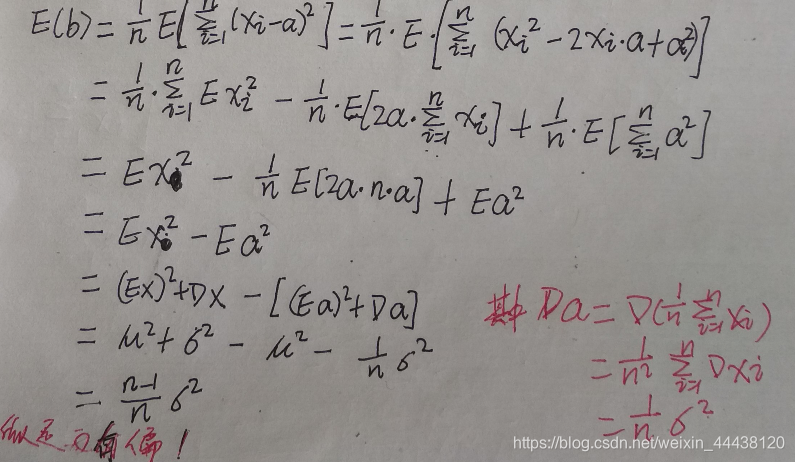 E(b) = 1/n E[∑_{i=1}^{n} (xi-a)²] = 1/n · E · [∑_{i=1}^{n} (xi² - 2xi·a + a²)]
= 1/n · ∑_{i=1}^{n} Exi² - 1/n · E[2a·∑_{i=1}^{n} xi] + 1/n · E[∑_{i=1}^{n} a²]
= Ex² - 1/n E[2a·n·a] + Ea²
= Ex² - Ea²
= (Ex)² + DX - [(Ea)² + Da]
= μ² + σ² - μ² - 1/n σ²
= n-1/n σ²
其中 Da = D(1/n ∑_{i=1}^{n} xi)
= 1/n² ∑_{i=1}^{n} Dxi
= 1/n σ²
有偏!
https://blog.csdn.net/weixin_44438120